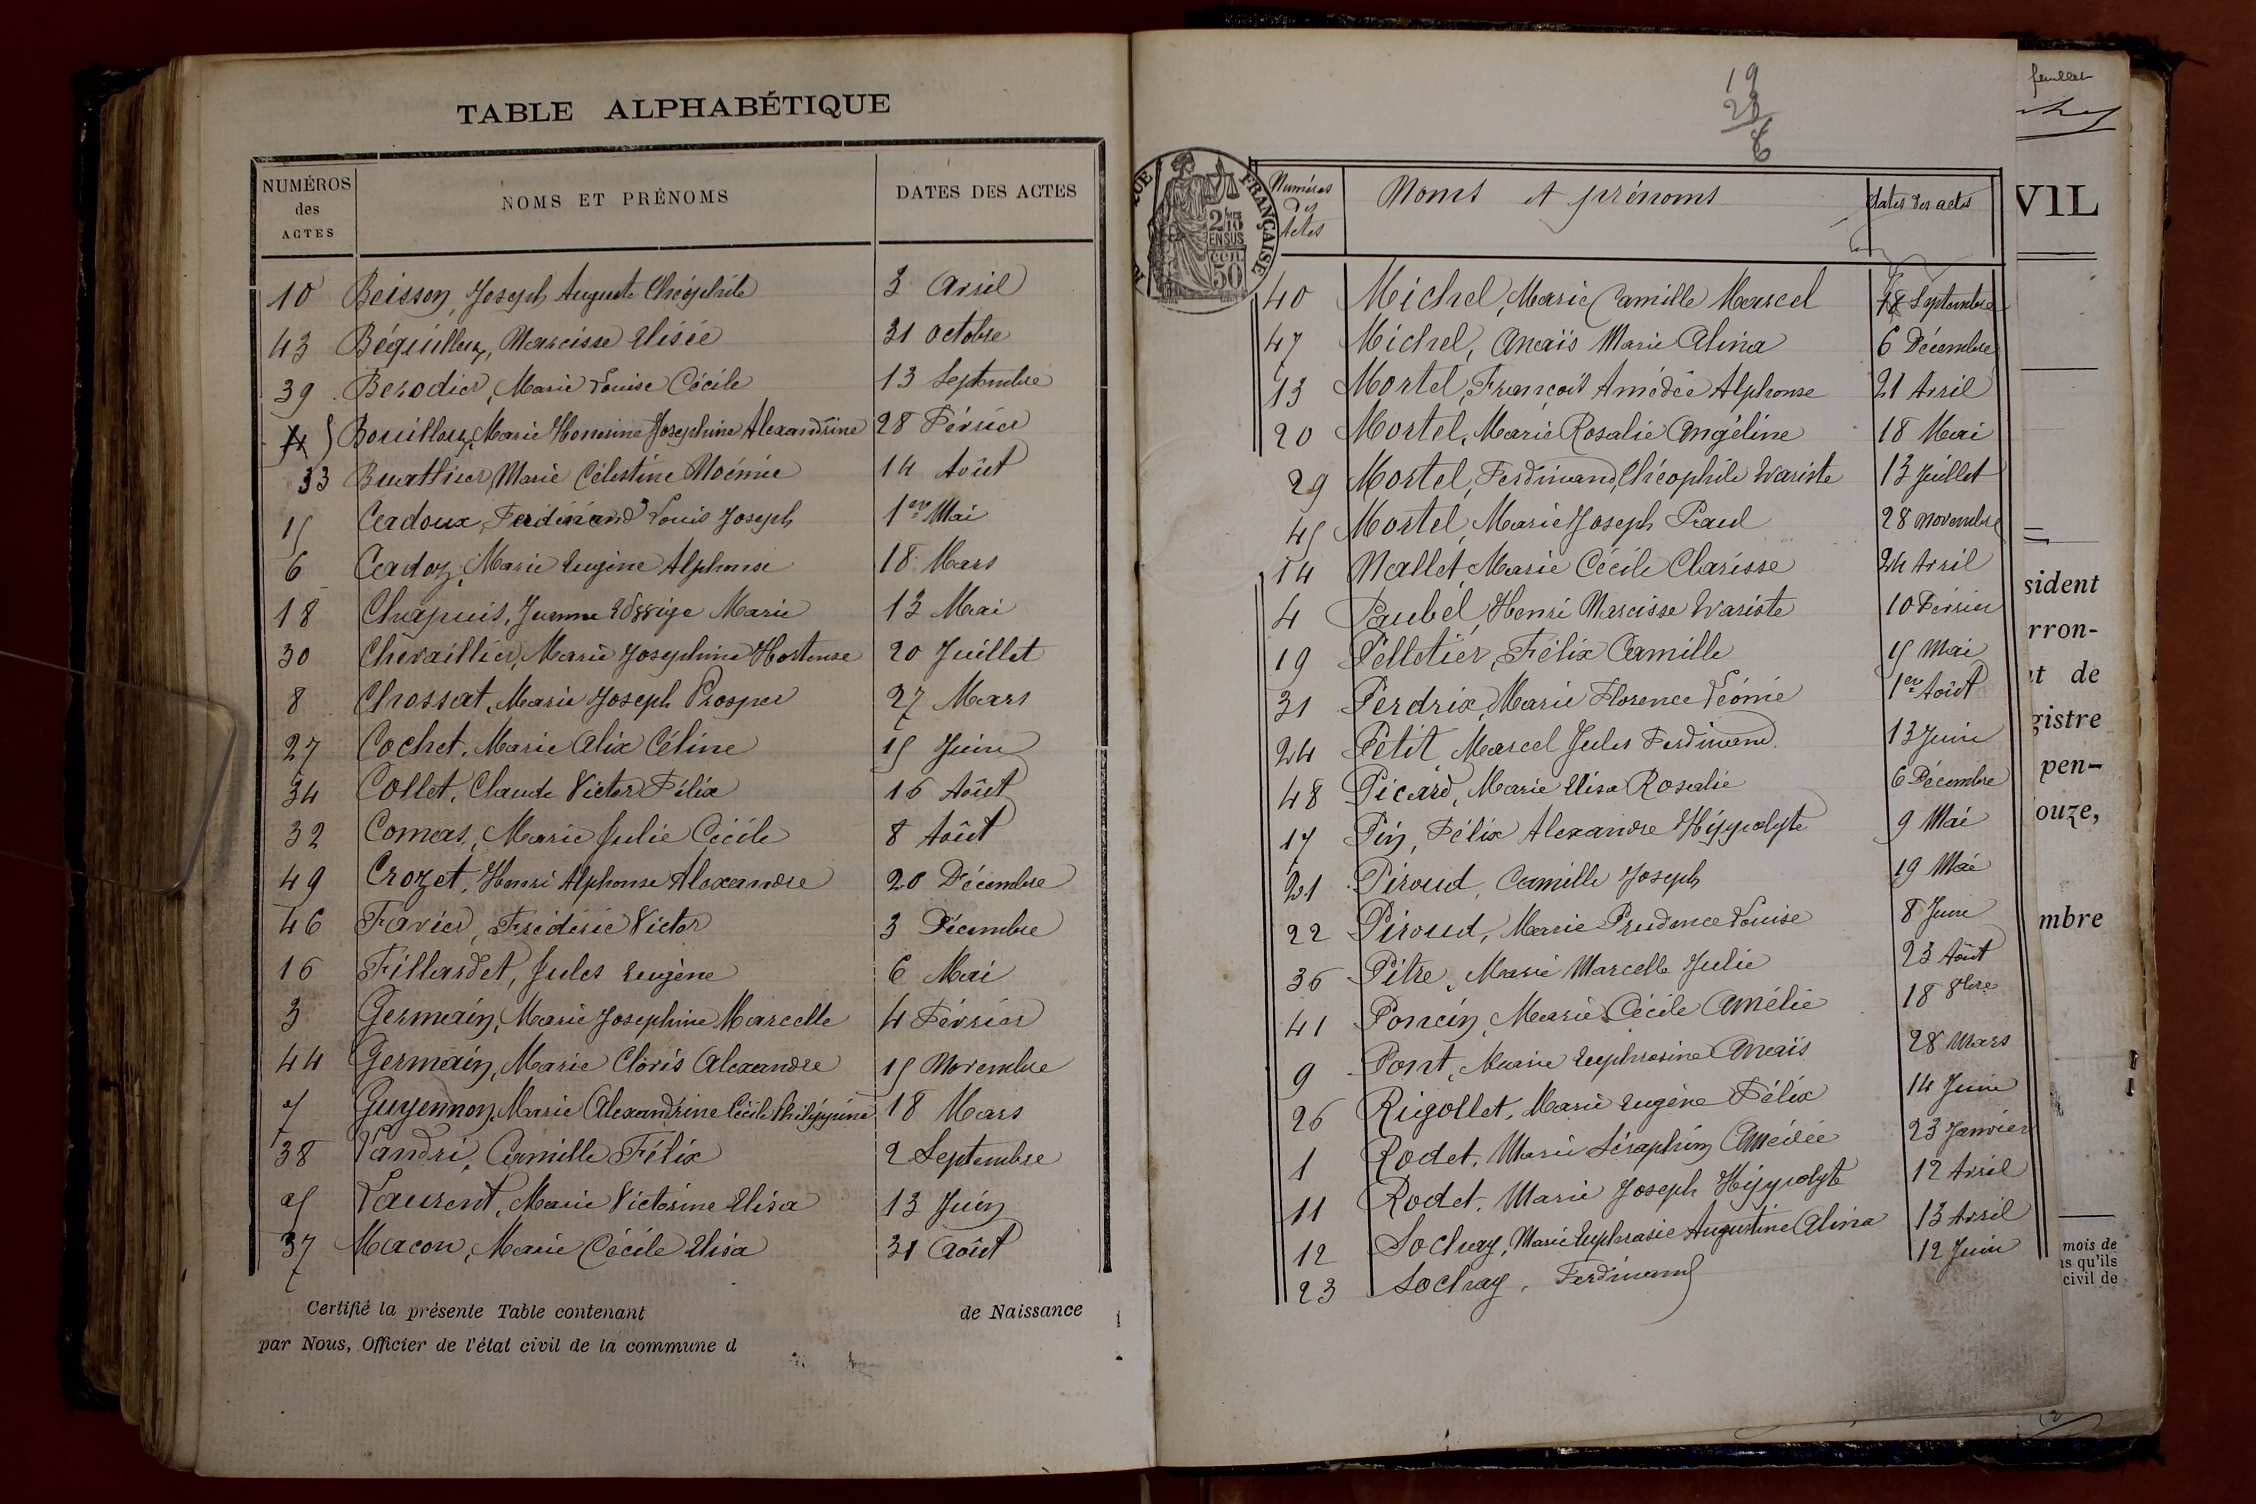 TABLE ALPHABÉTIQUE
NUMÉROS des ACTES NOMS ET PRÉNOMS DATES DES ACTES
10 Beisson, Joseph Auguste Théophile 3 Avril
43 Béguilleux, Narcisse Elisée 31 Octobre
39 Berodier, Marie Louise Cécile 13 Septembre
Bouilloux, Marie Honorine Josephine Alexandrine 28 Février
33 Buathier, Marie Célestine Noémie 14 Août
15 Cadoux, Ferdinand Louis Joseph 1er Mai
6 Cadoz, Marie Eugène Alphonse 18 Mars
18 Chapuis, Jeanne Edwige Marie 13 Mai
30 Chevaillier, Marie Josephine Hortense 20 Juillet
8 Chossat, Marie Joseph Prosper 27 Mars
27 Cochet, Marie Alix Céline 15 Juin
34 Collet, Claude Victor Félix 16 Août
32 Comas, Marie Julie Cécile 8 Août
49 Crozet, Henri Alphonse Alexandre 20 Décembre
46 Favier, Fréderic Victor 3 Décembre
16 Fillardet, Jules Eugène 6 Mai
3 Germain, Marie Josephine Marcelle 4 Février
44 Germain, Marie Clovis Alexandre 15 Novembre
7 Guyennon, Marie Alexandrine Cécile Philippine 18 Mars
38 Landri, Camille Félix 2 Septembre
25 Laurent, Marie Victorine Elisa 13 Juin
37 Macon, Marie Cécile Elisa 31 Août
Certifié la présente Table contenant de Naissance
par Nous, Officier de l'état civil de la commune d
19
28
FRANÇAISE
2/10 EN SUS
50
Numéros des Actes Noms et prénoms Dates des actes
40 Michel, Marie Camille Marcel 18 Septembre
47 Michel, Anaïs Marie Alina 6 Décembre
13 Mortel, François Amédée Alphonse 21 Avril
20 Mortel, Marie Rosalie Angéline 18 Mai
29 Mortel, Ferdinand Théophile Evariste 13 Juillet
45 Mortel, Marie Joseph Paul 28 Novembre
14 Nallet, Marie Cécile Clarisse 24 Avril
4 Paubel, Henri Narcisse Evariste 10 Février
19 Pelletier, Félix Camille 15 Mai
31 Perdrix, Marie Florence Léonie 1er Août
24 Petit, Marcel Jules Ferdinand 13 Juin
48 Picard, Marie Elisa Rosalie 6 Décembre
17 Pin, Félix Alexandre Hyppolyte 9 Mai
21 Piroud, Camille Joseph 19 Mai
22 Piroud, Marie Prudence Louise 8 Juin
36 Pitre, Marie Marcelle Julie 23 Août
41 Poncin, Marie Cécile Amélie 18 8bre
9 Pont, Marie Euphrosine Anaïs 28 Mars
26 Rigollet, Marie Eugène Félix 14 Juin
1 Rodet, Marie Séraphin Amédée 23 Janvier
11 Rodet, Marie Joseph Hyppolyte 12 Avril
12 Sochay, Marie Euphrasie Augustine Alina 13 Avril
23 Sochay, Ferdinand 12 Juin
feuillet
VIL
sident
rron-
t de
gistre
pen-
ouze,
mbre
mois de
ns qu'ils
civil de